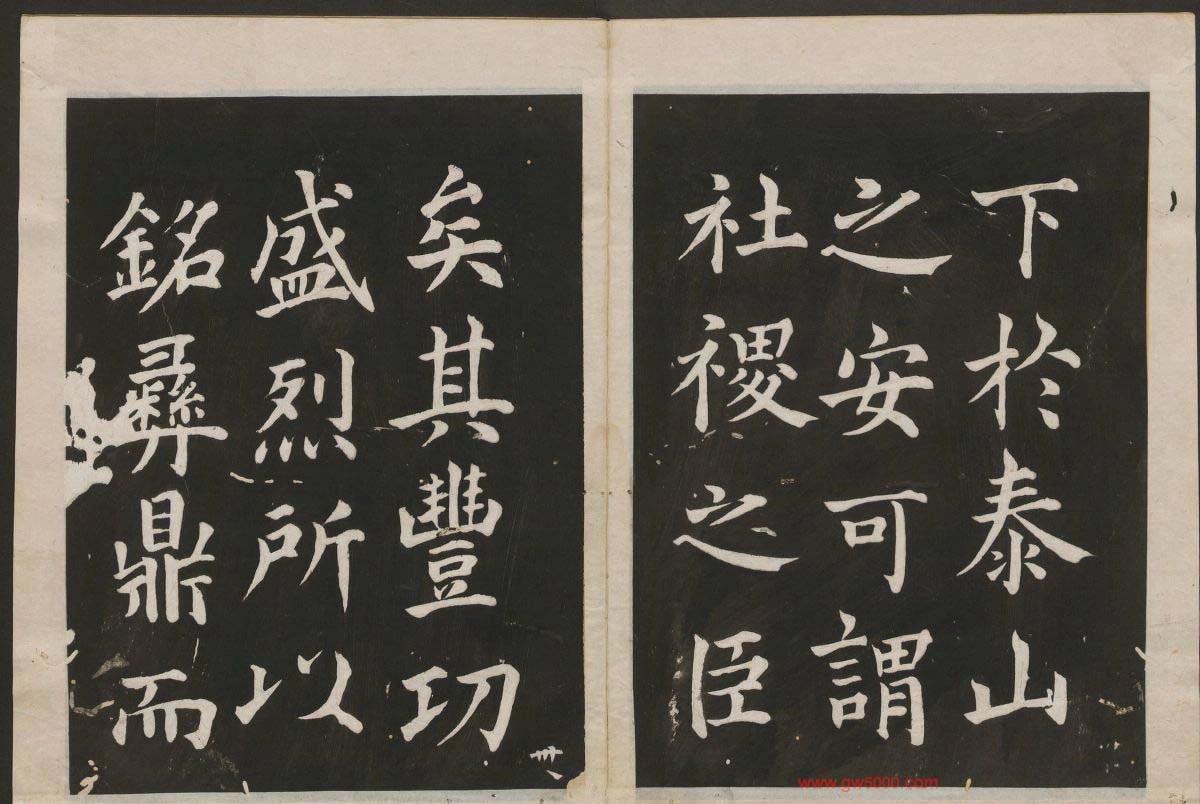 下於泰山
之安可謂
社稷之臣
矣其豐功
盛烈所以
銘彝鼎而
卅
www.gw5000.com